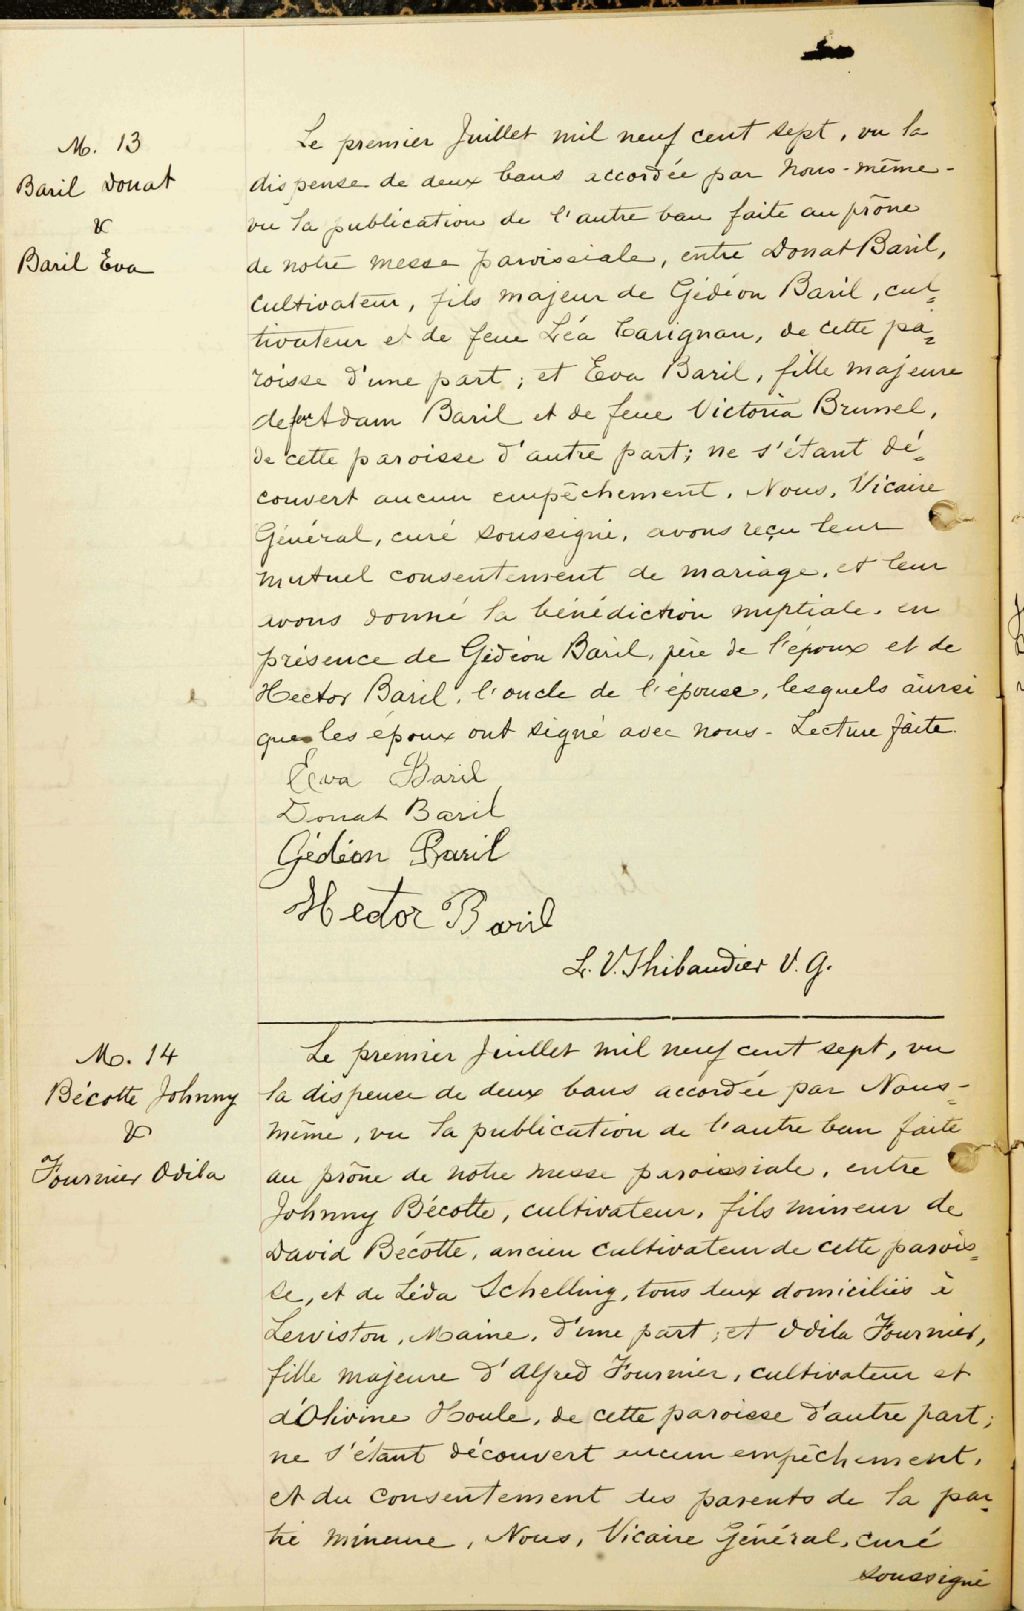 M. 13
Baril Donat
&
Baril Eva
Le premier Juillet mil neuf cent sept, vu la
dispense de deux bans accordée par Nous-même-
vu la publication de l'autre ban faite au prône
de notre messe paroissiale, entre Donat Baril,
cultivateur, fils majeur de Gédéon Baril, cul-
tivateur et de feue Léa Carignan, de cette pa-
roisse d'une part; et Eva Baril, fille majeure
de feu Adam Baril et de feue Victoria Brunel,
de cette paroisse d'autre part; ne s'étant dé-
couvert aucun empêchement, Nous, Vicaire
Général, curé soussigné, avons reçu leur
mutuel consentement de mariage, et leur
avons donné la bénédiction nuptiale, en
présence de Gédéon Baril, père de l'époux et de
Hector Baril, l'oncle de l'épouse, lesquels ainsi
que les époux ont signé avec nous - Lecture faite.
Eva Baril
Donat Baril
Gédéon Baril
Hector Baril
L. V. Thibaudier V. G.
M. 14
Bécotte Johnny
&
Fournier Odila
Le premier Juillet mil neuf cent sept, vu
la dispense de deux bans accordée par Nous-
même, vu la publication de l'autre ban faite
au prône de notre messe paroissiale, entre
Johnny Bécotte, cultivateur, fils mineur de
David Bécotte, ancien cultivateur de cette parois-
se, et de Léda Schelling, tous deux domiciliés à
Lewiston, Maine, d'une part; et Odila Fournier,
fille majeure d'Alfred Fournier, cultivateur et
d'Olivine Houle, de cette paroisse d'autre part;
ne s'étant découvert aucun empêchement,
et du consentement des parents de la par-
tie mineure, Nous, Vicaire Général, curé
soussigné